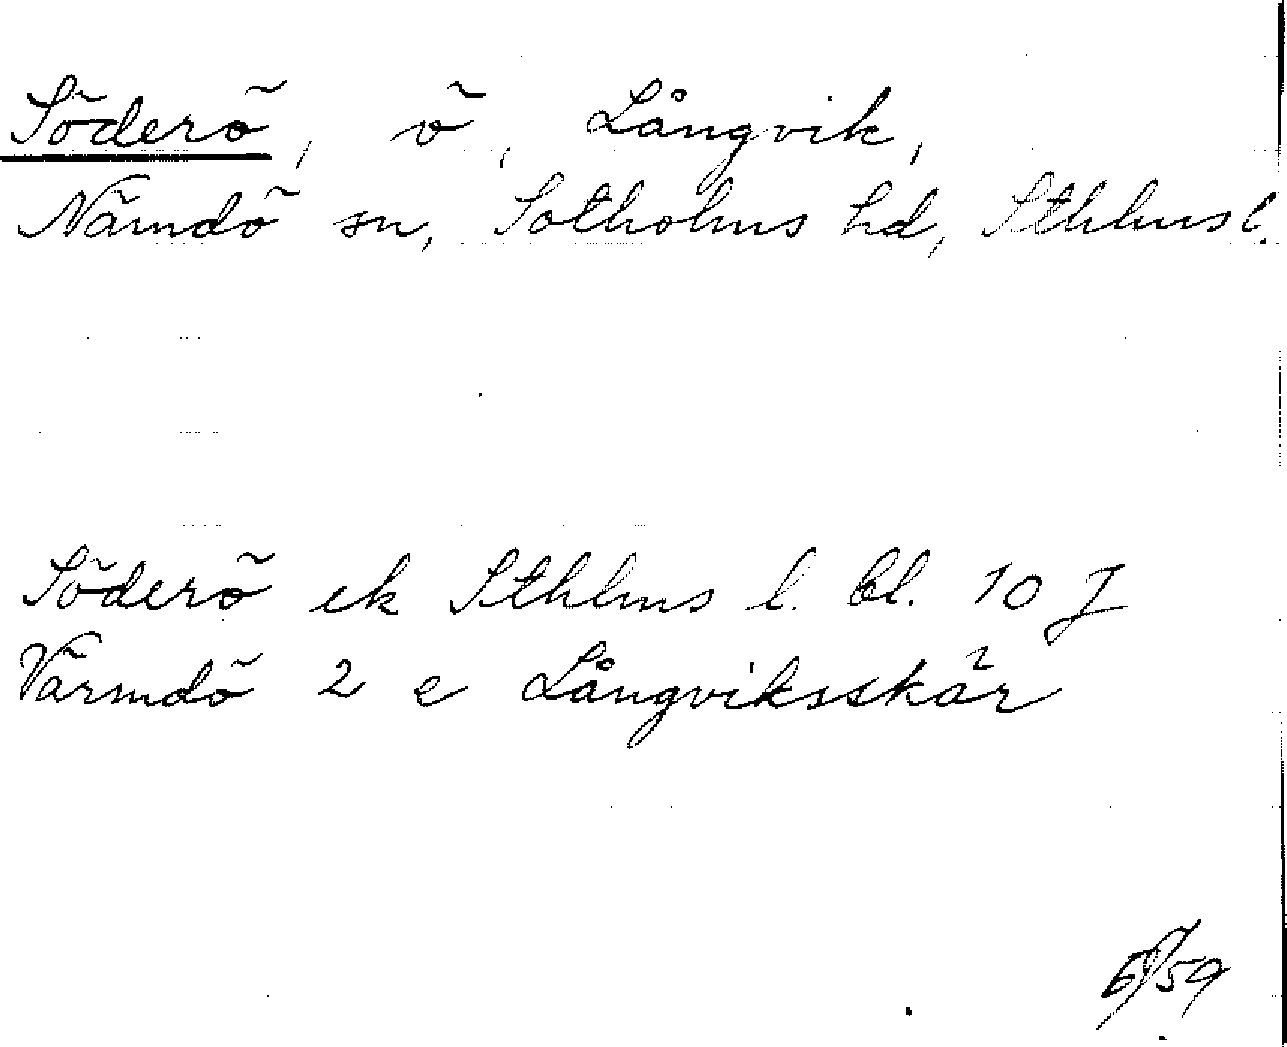 Söderö, ö, Långvik,
Nämdö sn, Sotholms hd, Sthlms l.
Söderö ek Sthlms l. bl. 10 J
Värmdö 2 e Långviksskär